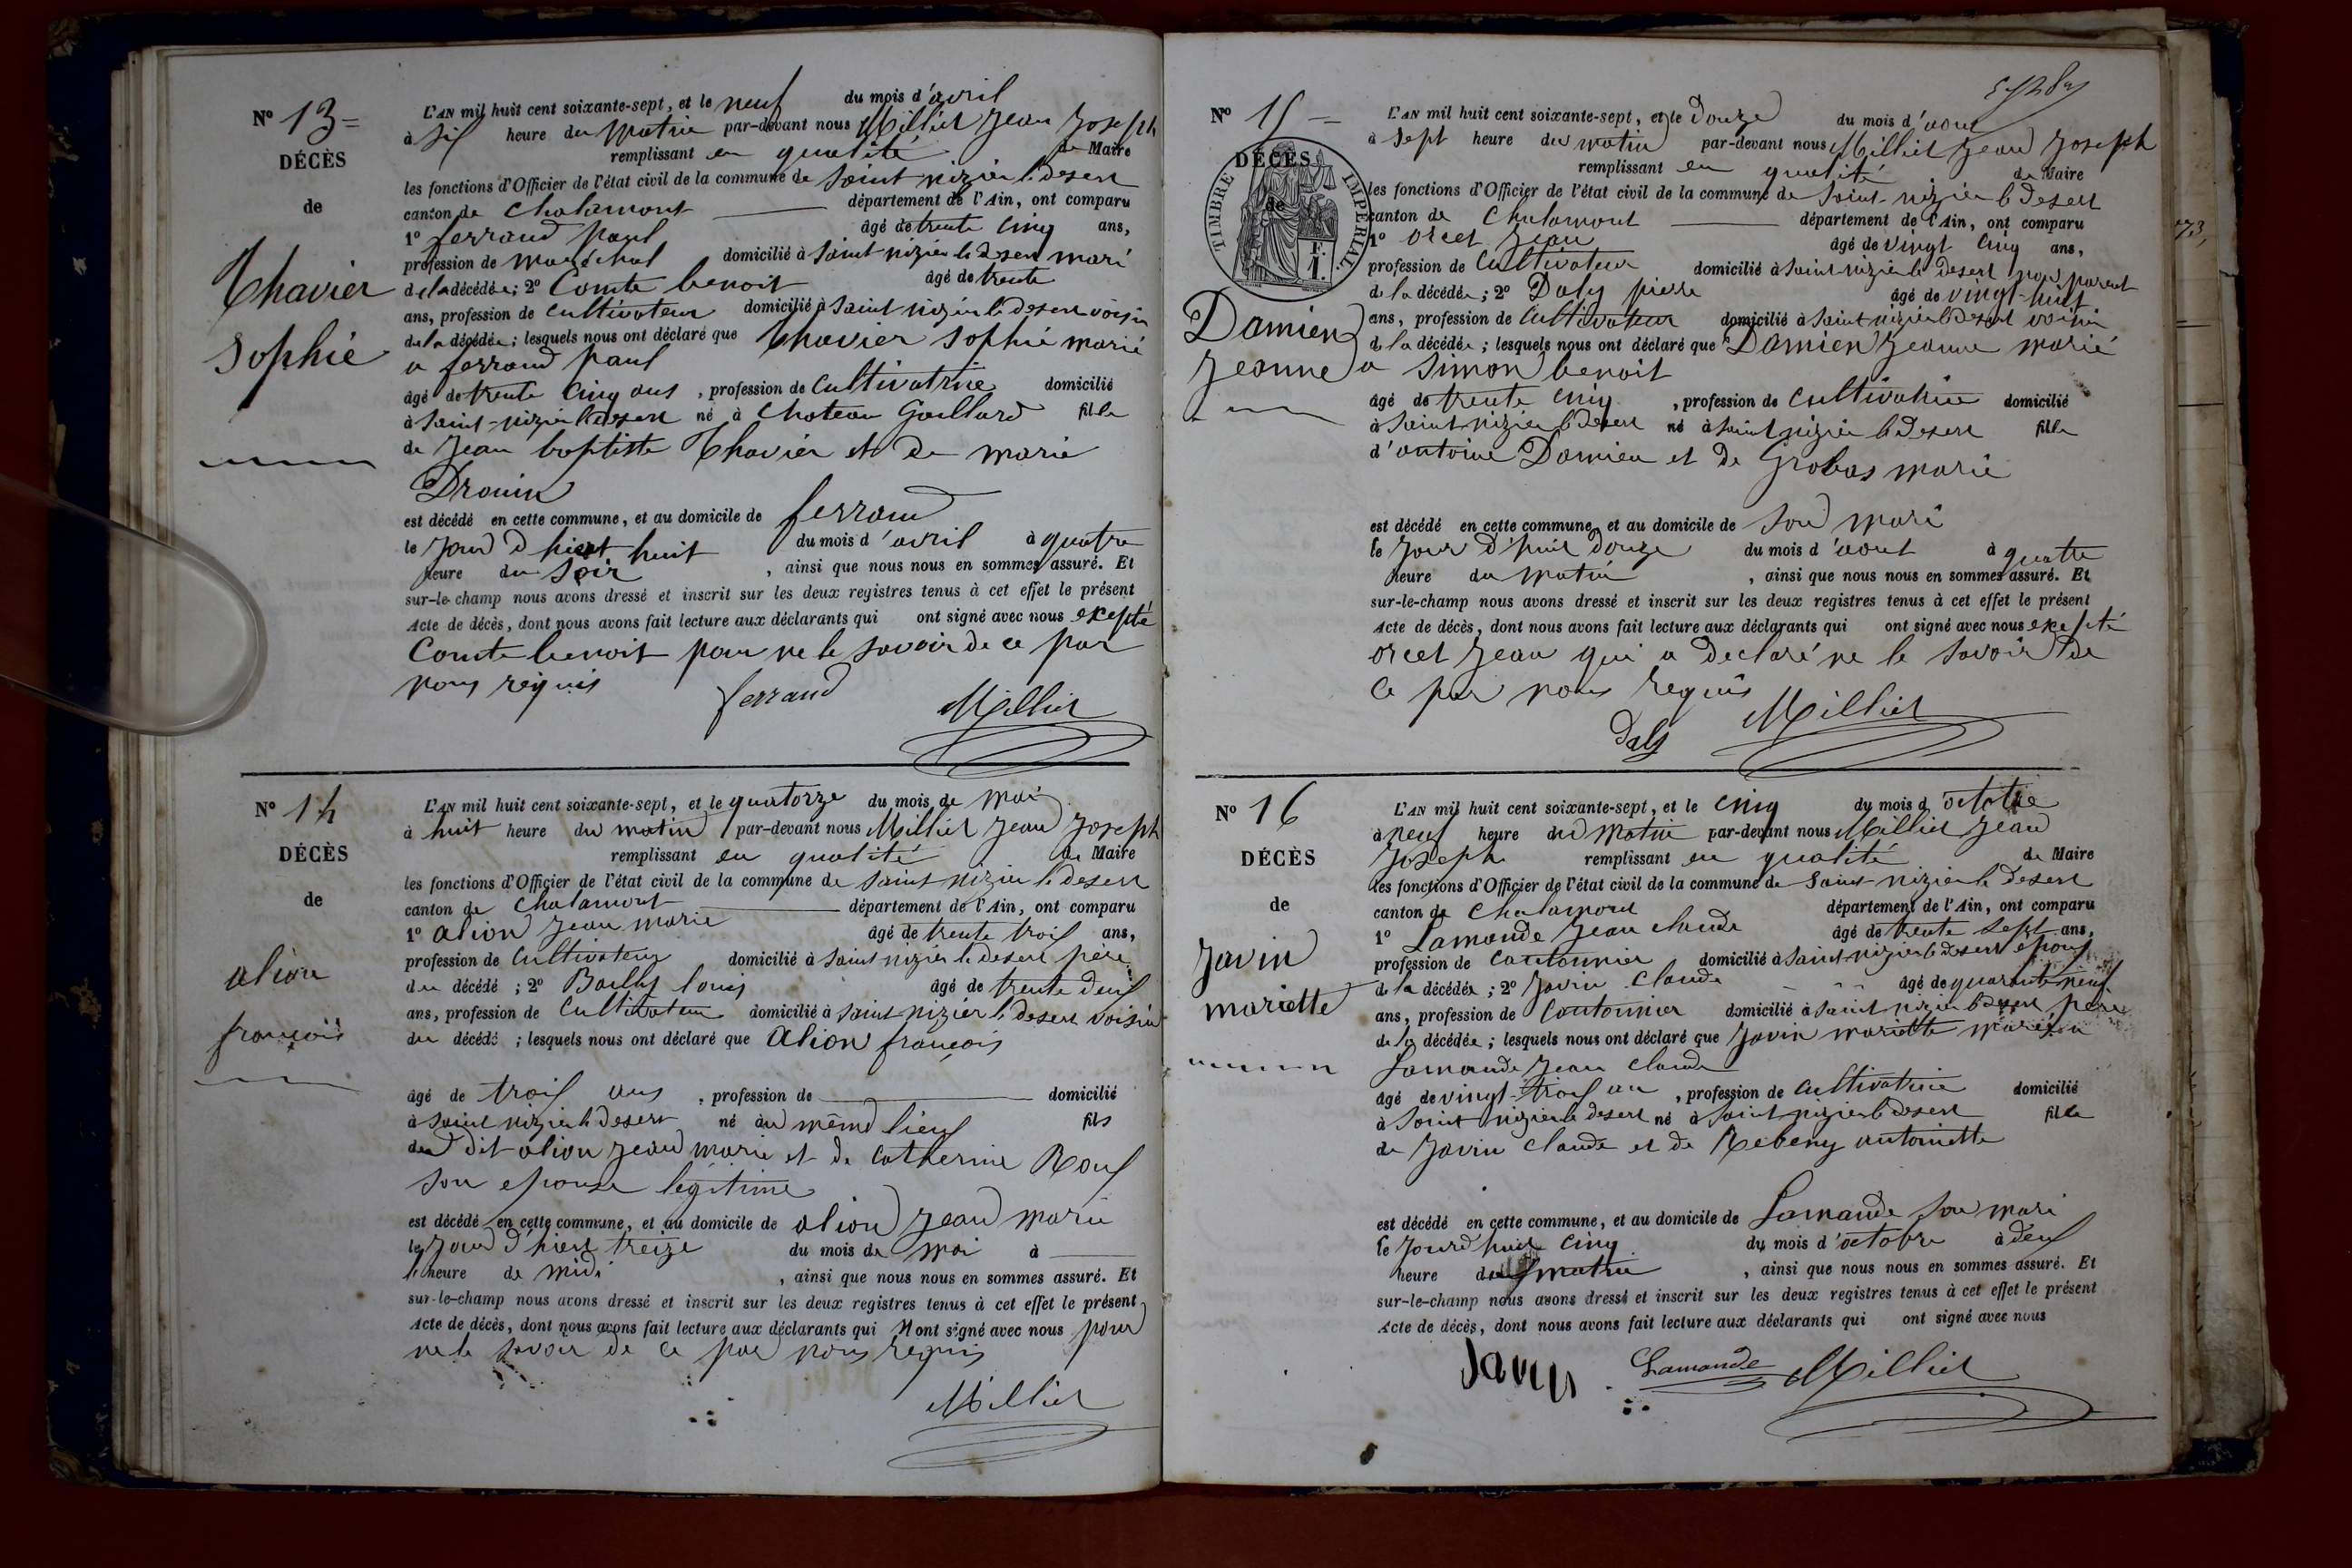 N° 13
DÉCÈS
de
Thavier
Sophie
L'AN mil huit cent soixante-sept, et le neuf du mois d'avril
à six heure du matin par-devant nous Milliet Jean Joseph
remplissant en qualité de Maire
les fonctions d'Officier de l'état civil de la commune de Saint nizier le desert
canton de Chalamont département de l'Ain, ont comparu
1° ferrand paul âgé de trente cinq ans,
profession de marechal domicilié à Saint nizier le desert mari
de la décédée; 2° Comte benoit âgé de trente
ans, profession de cultivateur domicilié à Saint nizier le desert voisin
de la décédée; lesquels nous ont déclaré que Thavier Sophie marié
a ferrand paul
âgé de trente cinq ans, profession de cultivatrice domicilié
à Saint-nizier le desert né à Chateau Gaillard fille
de Jean baptiste Thavier et de marie
Drouin
est décédé en cette commune, et au domicile de ferrand
le jour d'hier huit du mois d'avril à quatre
heure du soir, ainsi que nous nous en sommes assuré. Et
sur-le-champ nous avons dressé et inscrit sur les deux registres tenus à cet effet le présent
Acte de décès, dont nous avons fait lecture aux déclarants qui ont signé avec nous excepté
Comte benoit pour ne le savoir de ce par
nous requis
ferrand Milliet
N° 14
DÉCÈS
de
alion
françois
L'AN mil huit cent soixante-sept, et le quatorze du mois de mai
à huit heure du matin par-devant nous Milliet Jean Joseph
remplissant en qualité de Maire
les fonctions d'Officier de l'état civil de la commune de Saint nizier le desert
canton de Chalamont département de l'Ain, ont comparu
1° alion Jean marie âgé de trente trois ans,
profession de cultivateur domicilié à Saint nizier le desert père
du décédé; 2° Bailly louis âgé de trente deux
ans, profession de cultivateur domicilié à Saint nizier le desert voisin
du décédé; lesquels nous ont déclaré que alion françois
âgé de trois ans, profession de domicilié
à Saint nizier le desert né au même lieux fils
du dit alion Jean marie et de Catherine Roux
son epouse légitime
est décédé en cette commune, et au domicile de alion Jean marie
le jour d'hier treize du mois de mai à
l'heure de midi, ainsi que nous nous en sommes assuré. Et
sur-le-champ nous avons dressé et inscrit sur les deux registres tenus à cet effet le présent
Acte de décès, dont nous avons fait lecture aux déclarants qui N ont signé avec nous pour
ne le savoir de ce par nous requis
Milliet
N° 15
DÉCÈS
de
TIMBRE IMPÉRIAL
F.
1.
Damien
Jeanne
L'AN mil huit cent soixante-sept, et le douze du mois d'aout
à sept heure du matin par-devant nous Milliet Jean Joseph
remplissant en qualité de Maire
les fonctions d'Officier de l'état civil de la commune de Saint-nizier le desert
canton de Chalamont département de l'Ain, ont comparu
1° orcet Jean âgé de vingt cinq ans,
profession de cultivateur domicilié à Saint nizier le desert non parent
de la décédée; 2° Daly pierre âgé de vingt-huit
ans, profession de cultivateur domicilié à Saint nizier le desert voisin
de la décédée; lesquels nous ont déclaré que Damien Jeanne marié
a Simon benoit
âgé de trente cinq, profession de cultivatrice domicilié
à Saint nizier le desert né à Saint nizier le desert fille
d'antoine Damien et de Grobas marie
est décédé en cette commune, et au domicile de son mari
le jour d'huit douze du mois d'aout à quatre
heure du matin, ainsi que nous nous en sommes assuré. Et
sur-le-champ nous avons dressé et inscrit sur les deux registres tenus à cet effet le présent
Acte de décès, dont nous avons fait lecture aux déclarants qui ont signé avec nous excepté
orcet Jean qui a declaré ne le savoir de
ce par nous requis
Daly Milliet
N° 16
DÉCÈS
de
Javin
mariette
L'AN mil huit cent soixante-sept, et le cinq du mois d'octobre
à neuf heure du matin par-devant nous Milliet Jean
Joseph remplissant en qualité de Maire
les fonctions d'Officier de l'état civil de la commune de Saint-nizier le desert
canton de Chalamont département de l'Ain, ont comparu
1° Lamande Jean claude âgé de trente sept ans,
profession de cantonnier domicilié à Saint-nizier le desert epoux
de la décédée; 2° Javin Claude âgé de quarante neuf
ans, profession de Cantonnier domicilié à Saint nizier le desert père
de la décédée; lesquels nous ont déclaré que Javin mariette marié a
Lamande Jean claude
âgé de vingt-trois an, profession de cultivatrice domicilié
à Saint nizier le desert né à Saint nizier le desert fille
de Javin Claude et de Rebeny antoinette
est décédé en cette commune, et au domicile de Lamande son mari
le jourd'huit cinq du mois d'octobre à deux
heure du matin, ainsi que nous nous en sommes assuré. Et
sur-le-champ nous avons dressé et inscrit sur les deux registres tenus à cet effet le présent
Acte de décès, dont nous avons fait lecture aux déclarants qui ont signé avec nous
Javin Lamande Milliet